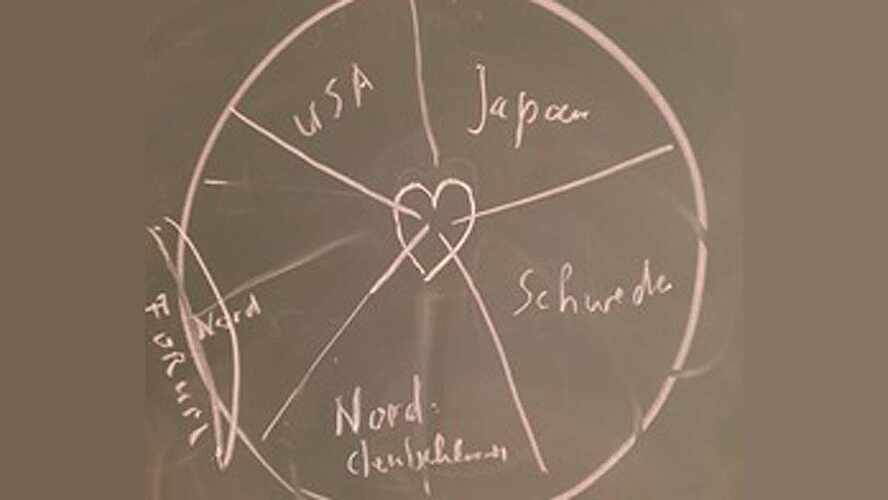 USA
Japan
Schweden
Nord
Nord-
deutschland